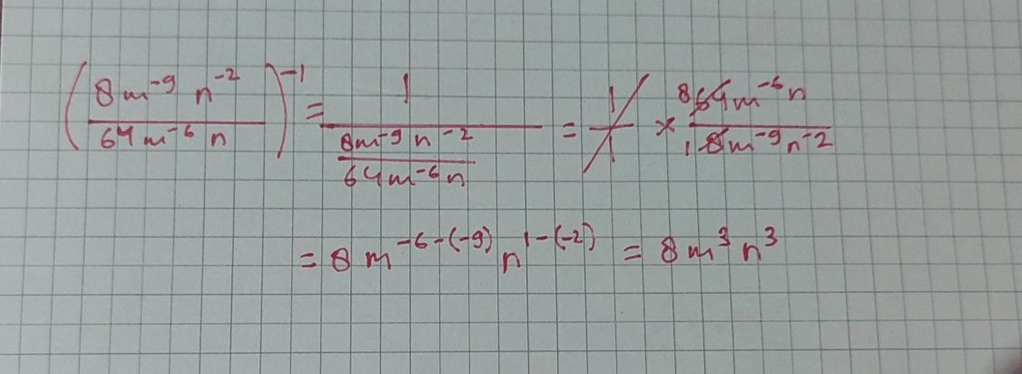 (8m⁻⁹ n⁻² / 64m⁻⁶ n)⁻¹ = 1 / (8m⁻⁹ n⁻² / 64m⁻⁶n) = 1/1 × 8 64m⁻⁶n / 1 8m⁻⁹n⁻²
= 8 m⁻⁶⁻⁽⁻⁹⁾ n¹⁻⁽⁻²⁾ = 8m³ n³